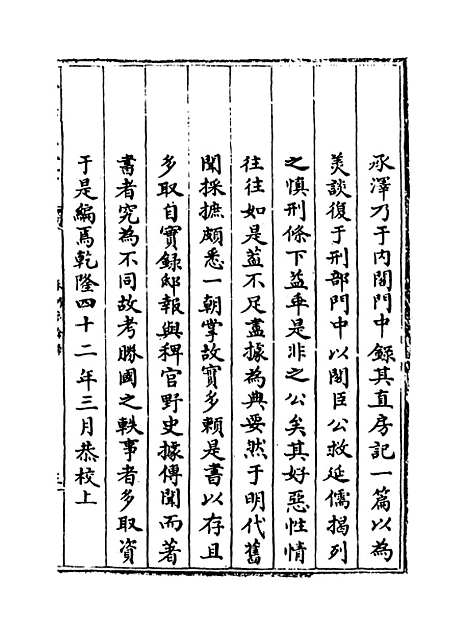 承澤乃于内閣門中錄其直房記一篇以為
美談復于刑部門中以閣臣公救延儒揭列
之慎刑條下益乖是非之公矣其好惡性情
往往如是葢不足盡據為典要然于明代舊
聞採摭頗悉一朝掌故實多賴是書以存且
多取自實錄邸報與稗官野史據傳聞而著
書者究為不同故考勝國之軼事者多取資
于是編焉乾隆四十二年三月恭校上